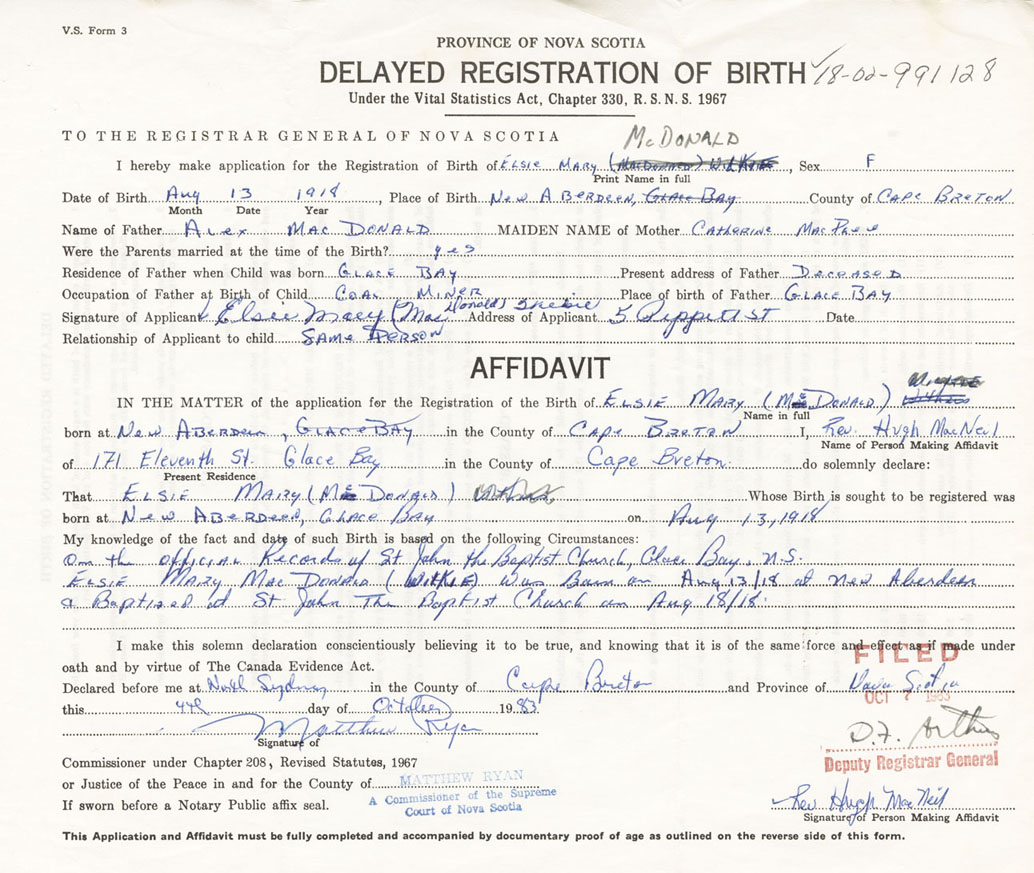 V.S. Form 3
PROVINCE OF NOVA SCOTIA
DELAYED REGISTRATION OF BIRTH 18-02-991128
Under the Vital Statistics Act, Chapter 330, R.S.N.S. 1967
TO THE REGISTRAR GENERAL OF NOVA SCOTIA McDONALD
I hereby make application for the Registration of Birth of ELSIE MARY (MACDONALD) , Sex F
Print Name in full
Date of Birth Aug 13 1918 , Place of Birth NEW ABERDEEN, GLACE BAY County of CAPE BRETON
Month Date Year
Name of Father ALEX MAC DONALD MAIDEN NAME of Mother CATHERINE MAC PHEE
Were the Parents married at the time of the Birth? yes
Residence of Father when Child was born GLACE BAY Present address of Father DECEASED
Occupation of Father at Birth of Child COAL MINER Place of birth of Father GLACE BAY
Signature of Applicant Elsie Mary (MacDonald) Address of Applicant 5 Date
Relationship of Applicant to child SAME PERSON
AFFIDAVIT
IN THE MATTER of the application for the Registration of the Birth of ELSIE MARY (McDONALD)
Name in full
born at NEW ABERDEEN, GLACE BAY in the County of CAPE BRETON I, Rev. Hugh MacNeil
Name of Person Making Affidavit
of 171 Eleventh St. Glace Bay in the County of Cape Breton. do solemnly declare:
Present Residence
That ELSIE MARY (McDONALD) Whose Birth is sought to be registered was
born at NEW ABERDEEN, GLACE BAY on Aug 13, 1918
My knowledge of the fact and date of such Birth is based on the following Circumstances:
On the official Records of St John the Baptist Church, Glace Bay, N.S.
ELSIE MARY MAC DONALD (WITHE) was Born on Aug 13/18 at New Aberdeen
& Baptized at St John The Baptist Church on Aug 18/18.
I make this solemn declaration conscientiously believing it to be true, and knowing that it is of the same force and effect as if made under
oath and by virtue of The Canada Evidence Act.
FILED
Declared before me at North Sydney in the County of Cape Breton and Province of Nova Scotia
OCT 7 1983
this 4th day of October 1983
Matthew Ryan
Signature of
D.F. Arthur
Deputy Registrar General
Commissioner under Chapter 208, Revised Statutes, 1967
or Justice of the Peace in and for the County of MATTHEW RYAN
A Commissioner of the Supreme
Court of Nova Scotia
If sworn before a Notary Public affix seal.
Rev. Hugh MacNeil
Signature of Person Making Affidavit
This Application and Affidavit must be fully completed and accompanied by documentary proof of age as outlined on the reverse side of this form.